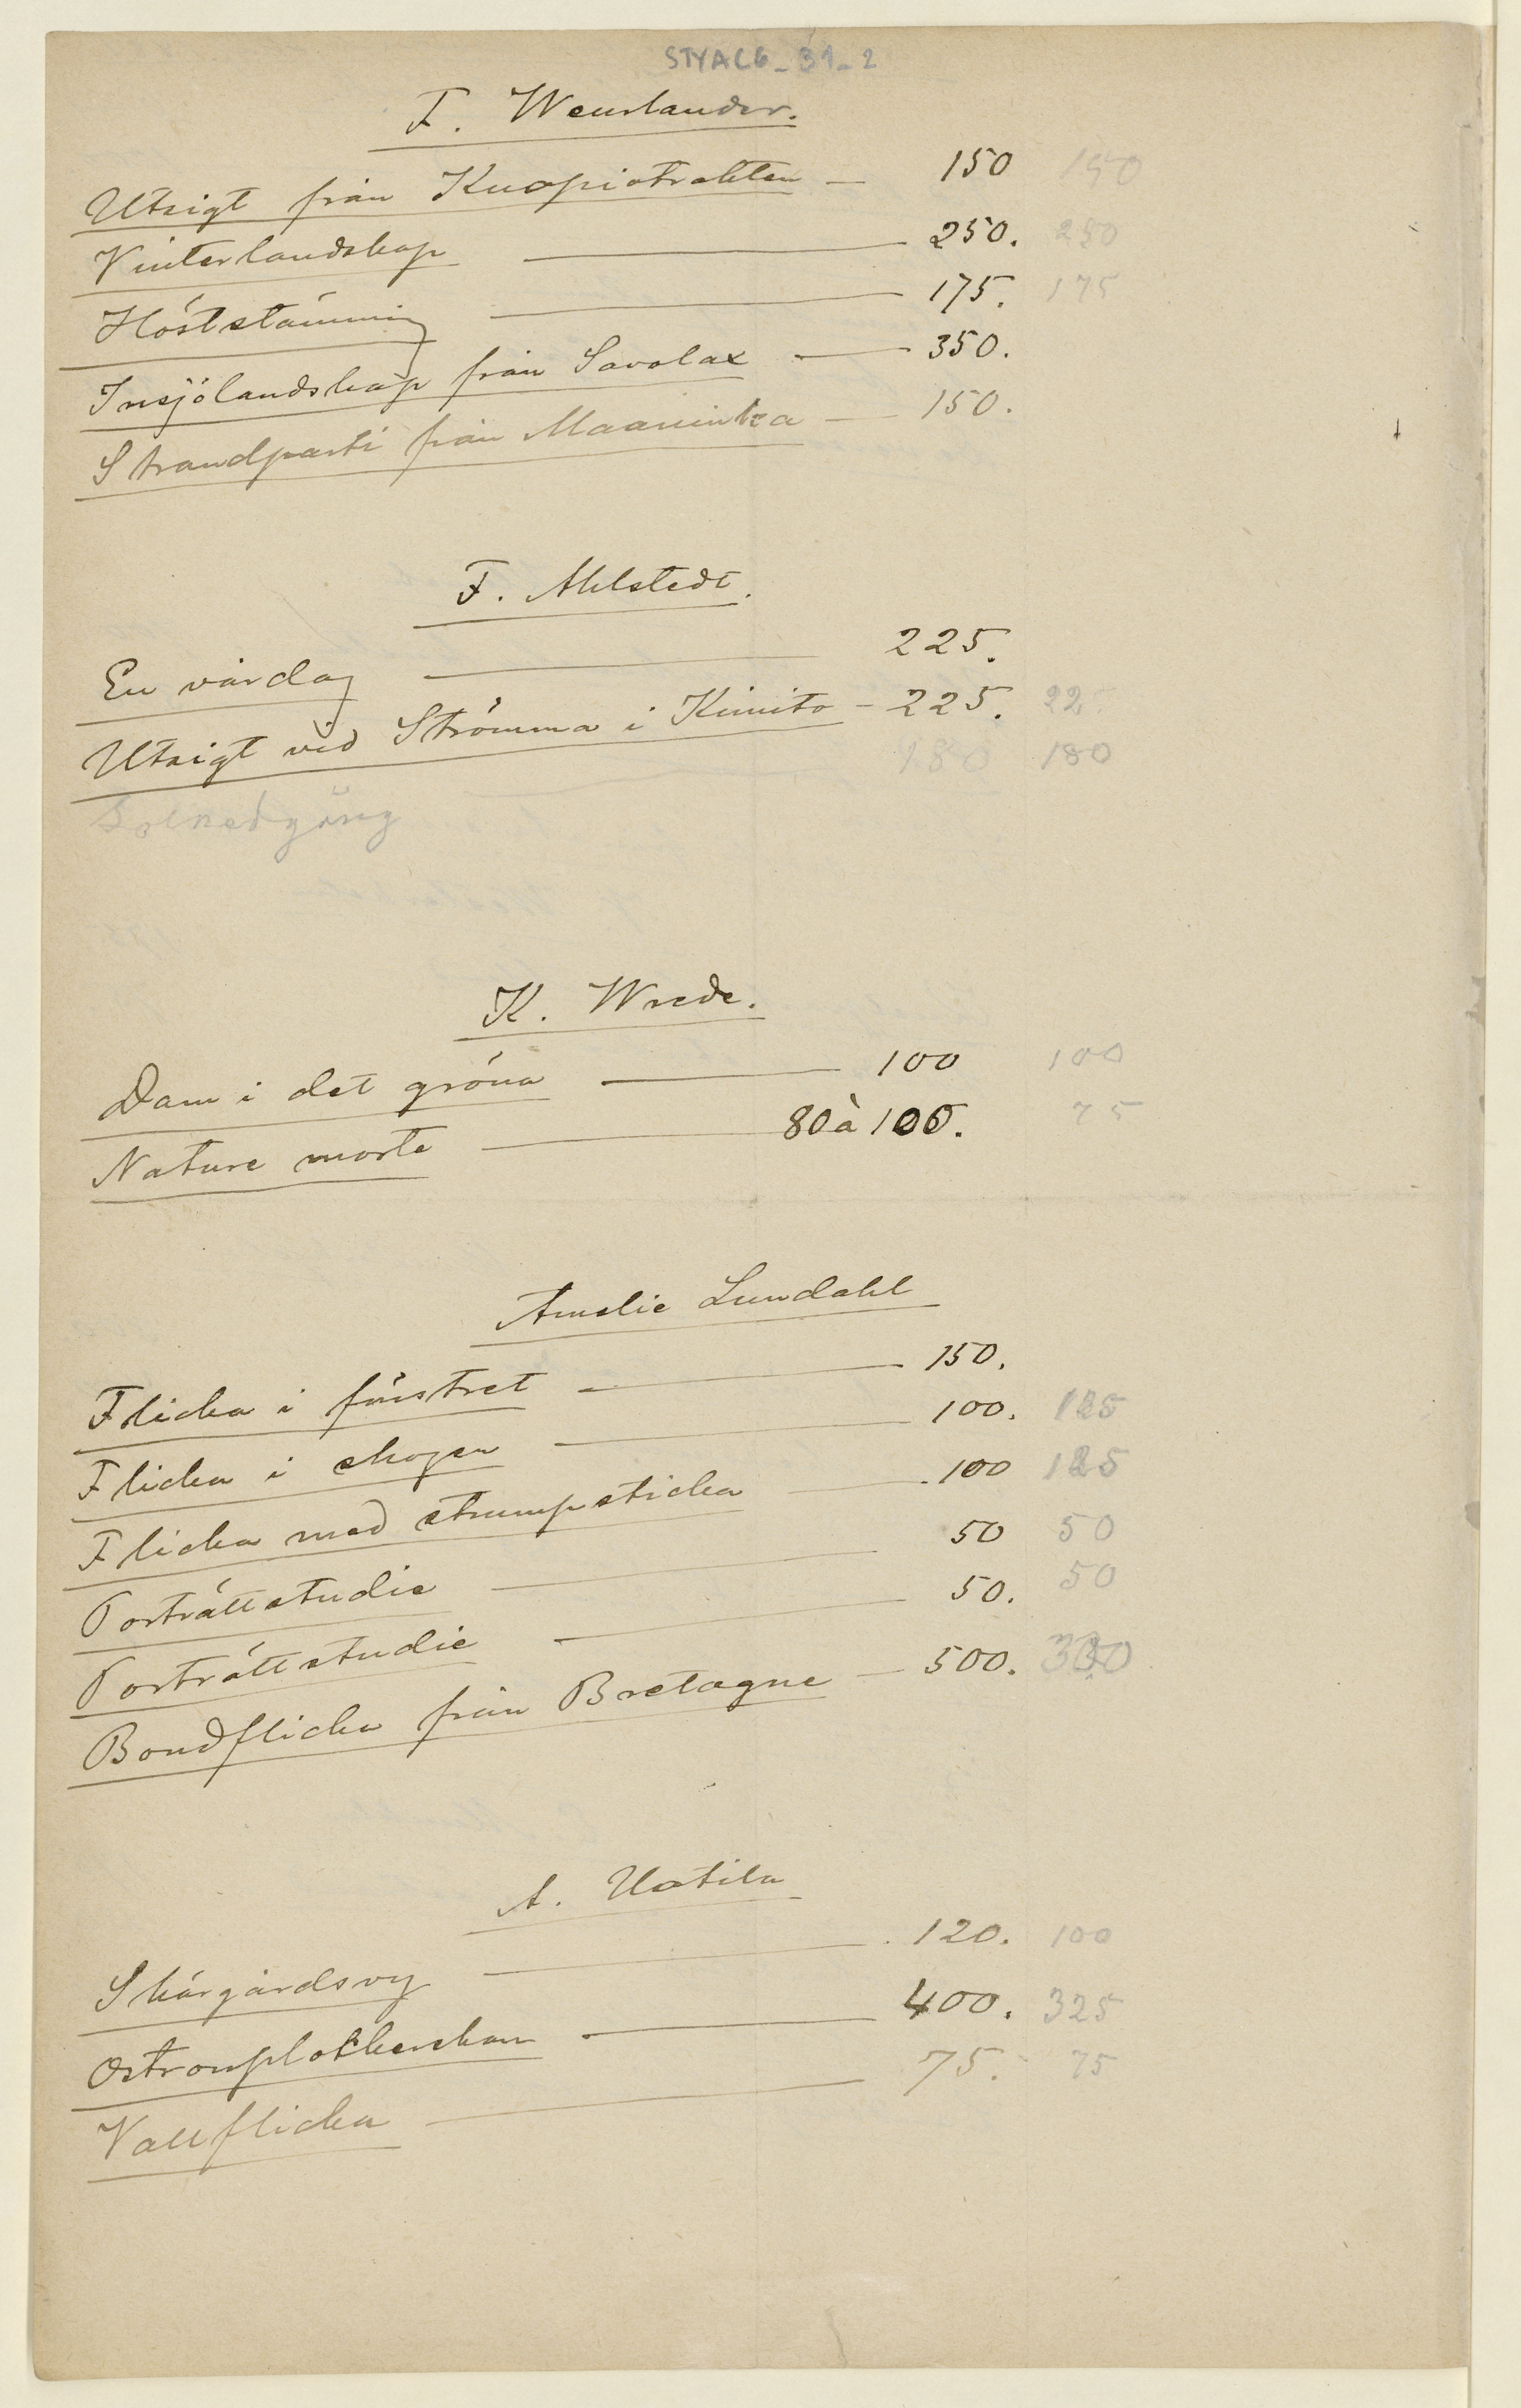 STYAC6_31_2
T. Wenlander.
Utsigt från Kuopiotrakten — 150 150
Vinterlandskap — 250. 250
Höststämning — 175. 175
Insjölandskap från Savolax — 350.
Strandparti från Maaninka — 150.
F. Ahlstedt.
En vårdag — 225.
Utsigt vid Strömma i Kimito - 225. 22
Solnedgång 180 180
K. Wrede.
Dam i det gröna — 100 100
Nature morte — 80 à 100. 75
Amelie Lundahl
Flicka i fönstret — 150.
Flicka i skogen — 100. 125
Flicka med strumpsticka — 100 125
Porträttstudie — 50 50
Porträttstudie — 50. 50
Bondflicka från Bretagne — 500. 300
A. Uotila
Skärgårdsvy — 120. 100
Ostronplockerskan — 400. 325
Vallflicka — 75. 75